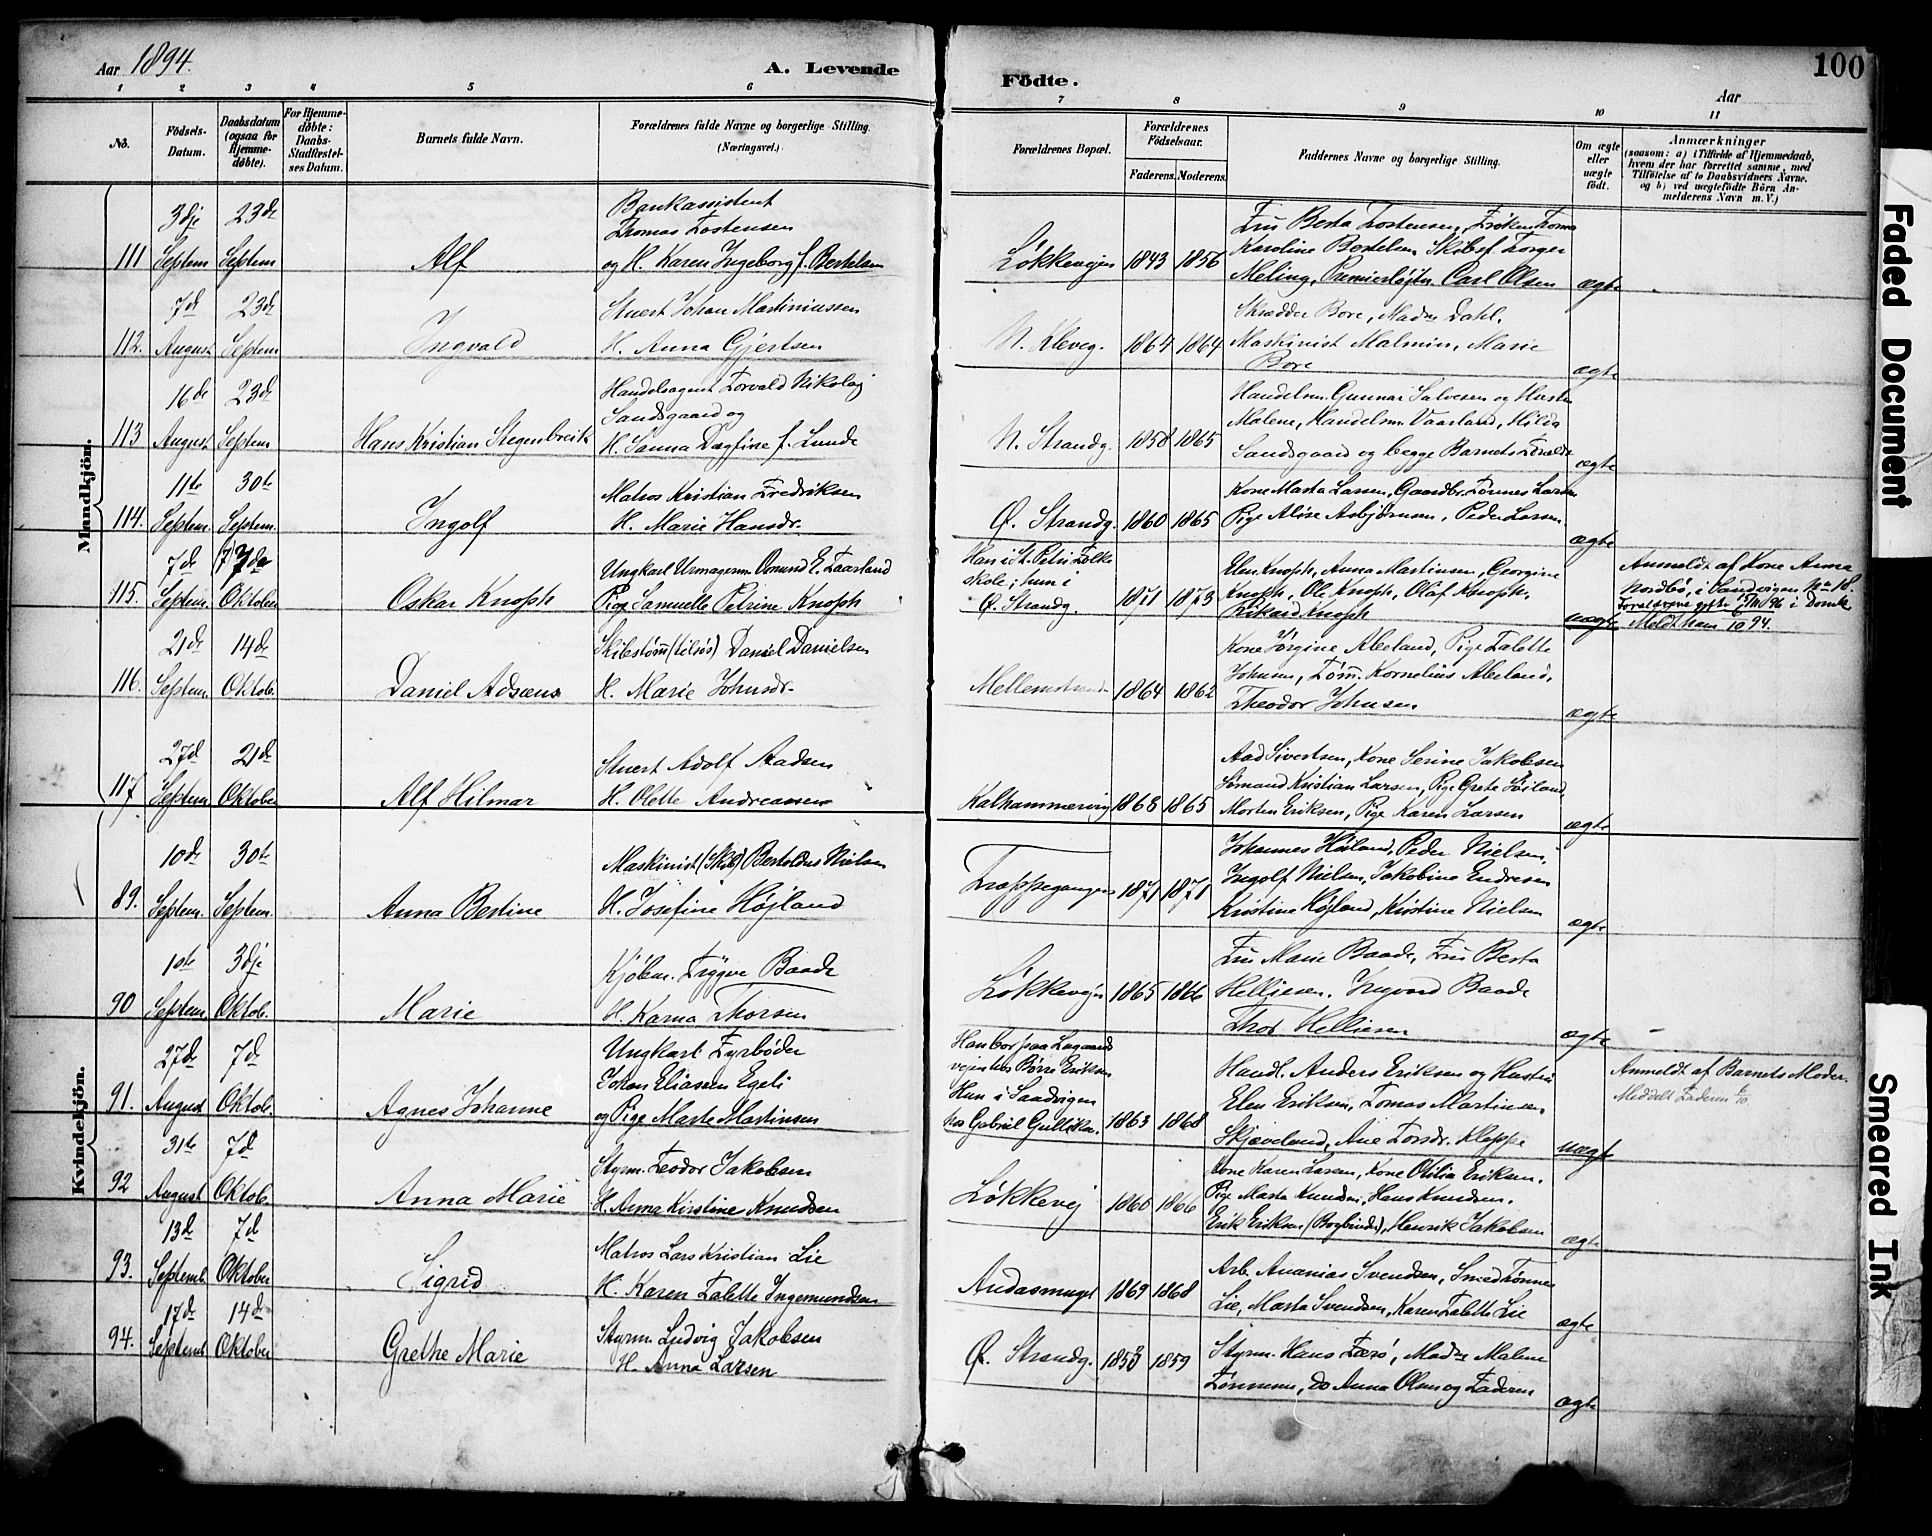 Aar 1894.
A. Levende
Födte.
100
Aar
1
2
3
4
5
6
7
8
9
10
11
No.
Födsels-
Datum.
Daabsdatum
(ogsaa for
Hjemme-
döbte).
For Hjemme-
döbte:
Daabs-
Stadfæstel-
ses Datum.
Barnets fulde Navn.
Forældrenes fulde Navne og borgerlige Stilling.
(Næringsvei.)
Forældrenes Bopæl.
Forældrenes
Födselsaar.
Faderens.
Moderens.
Faddernes Navne og borgerlige Stilling.
Om ægte
eller
uægte
födt.
Anmærkninger
(saasom: a) i Tilfælde af Hjemmedaab,
hvem der har forrettet samme, med
Tilföielse af to Daabsvidners Navne.
og b) ved uægtefödte Börn An-
melderens Navn m. V.)
Mandkjön.
111
3dje
Septem
23de
Septem
Alf
Bankassistent
Thomas Tostensen
og H. Karen Ingeborg f. Bertelsen
Løkkevejen
1843
1856
Fru Berta Tostensen, Frøken
Karoline Bertelsen Skibsf. Torger
Meling, Premierløjtn. Carl Olsen
ægte
112.
7d
August
23d
Septem
Ingvald
Stuert Johan Martiniussen
H. Anna Gjertsen
N. Kleveg.
1864
1864
Skrædder Bore, Mad. Dahl,
Maskinist Malmin, Marie
Bore
ægte
113
16de
August
23d
Septem
Hans Kristian Stegenbreik
Handelsagent Torvald Nikolaj
Sandsgaard og
H. Sanna Dagfine f. Lunde
N. Strandg.
1858
1865
Handelsm. Gunnar Salvesen og Hustru
Malene, Handelsm. Vaarland, Hilda
Sandsgaard og begge Barnets Foreldre
ægte
114.
11te
Septem.
30te
Septem.
Ingolf
Matros Kristian Fredriksen
H. Marie Hansdr.
Ø. Strandg.
1860
1865
Kone Marta Larsen, Gaardbr. Tønnes Larsen
Pige Aløse Asbjørnsen, Peder Larsen.
ægte
115.
7d
Septem.
7de
Oktober
Oskar Knoph
Ungkarl Urmagerm. Osmund E. Taarland
Pige Samuelle Petrine Knoph
Han i St. Petri Folke
skole; hun i
Ø. Strandg.
1871
1873
Elen Knoph, Anna Martinsen, Georgine
Knoph, Ole Knoph, Olaf Knoph,
Rikard Knoph
uægte
Anmeldt af Kone Anna
Nordbö, i Sandvigen No 18.
Foreldrene gifte 96 i Domk.
Meldt ham 94.
116.
21de
Septem.
14de
Oktob.
Daniel Adsens
Skibstømm (tilsøs) Daniel Danielsen
H. Marie Johnsdr.
Mellemstrand
1864
1862
Kone Jørgine Abeland, Pige Talette
Johnsen, Tøm. Kornelius Abeland,
Theodor Johnsen
ægte
117
27d
Septem
21de
Oktober
Alf Hilmar
Stuert Adolf Aadsen
H. Olette Andreassen
Kalhammervig
1868
1865
Aad Sivertsen, Kone Serine Jakobsen
Sømand Kristian Larsen, Pige Grete Høiland,
Morten Eriksen, Pige Karen Larsen
ægte
Kvindekjön.
89.
10de
Septem.
30te
Septem.
Anna Bertine
Maskinist (Skib) Bertoldus Nielsen
H. Josefine Højland
Trappegangen
1871
1871
Johannes Høiland, Peder Nielsen,
Ingolf Nielsen, Jakobine Endresen
Kristine Højland, Kristine Nielsen
ægte
90
10te
Septem.
3dje
Oktob.
Marie
Kjøbm. Trygve Baade
H. Karna Thorsen
Løkkevejen
1865
1866
Fru Marie Baade, Fru Berta
Helliesen, Ingvard Baade
Thor Helliesen
ægte
91.
27de
August
7d
Oktob.
Agnes Johanne
Ungkarl Fyrbøder
Johan Eliasen Egeli
og Pige Marte Martinsen
Han bor paa Lagaards
vejen hos Børre Eriksen
Hun i Sandvigen
hos Gabriel Gulliksen.
1863
1868
Handl. Anders Eriksen og Hustru
Elen Eriksen, Tomas Martinsen
Skjæveland, Ane Torsdr. Kleppe
uægte
Anmeldt af Barnets Moder.
Meddelt Faderen
92
31te
August
7d
Oktob.
Anna Marie
Styrm. Teodor Jakobsen
H. Anna Kirstine Knudsen
Løkkevej
1860
1866
Kone Karen Larsen, Kone Otilia Eriksen,
Pige Marta Knudsen, Hans Knudsen,
Erik Eriksen (Bogbinder), Henrik Jakobsen
ægte
93.
13de
Septemb.
7d
Oktober
Sigrid
Matros Lars Kristian Lie
H. Karen Talette Ingemundsen
Andasmuget
1869
1868
Arb. Ananias Svendsen, Smed Tönnes
Lie, Marta Svendsen, Karen Talette Lie
ægte
94.
17de
Septemb
14de
Oktober
Grethe Marie
Styrm. Ludvig Jakobsen
H. Anna Larsen
Ø. Strandg.
1853
1859
Styrm. Hans Færö, Mad. Malene
Tönnesen, do Anna Olsen og Faderen
ægte
Faded Document
Smeared Ink